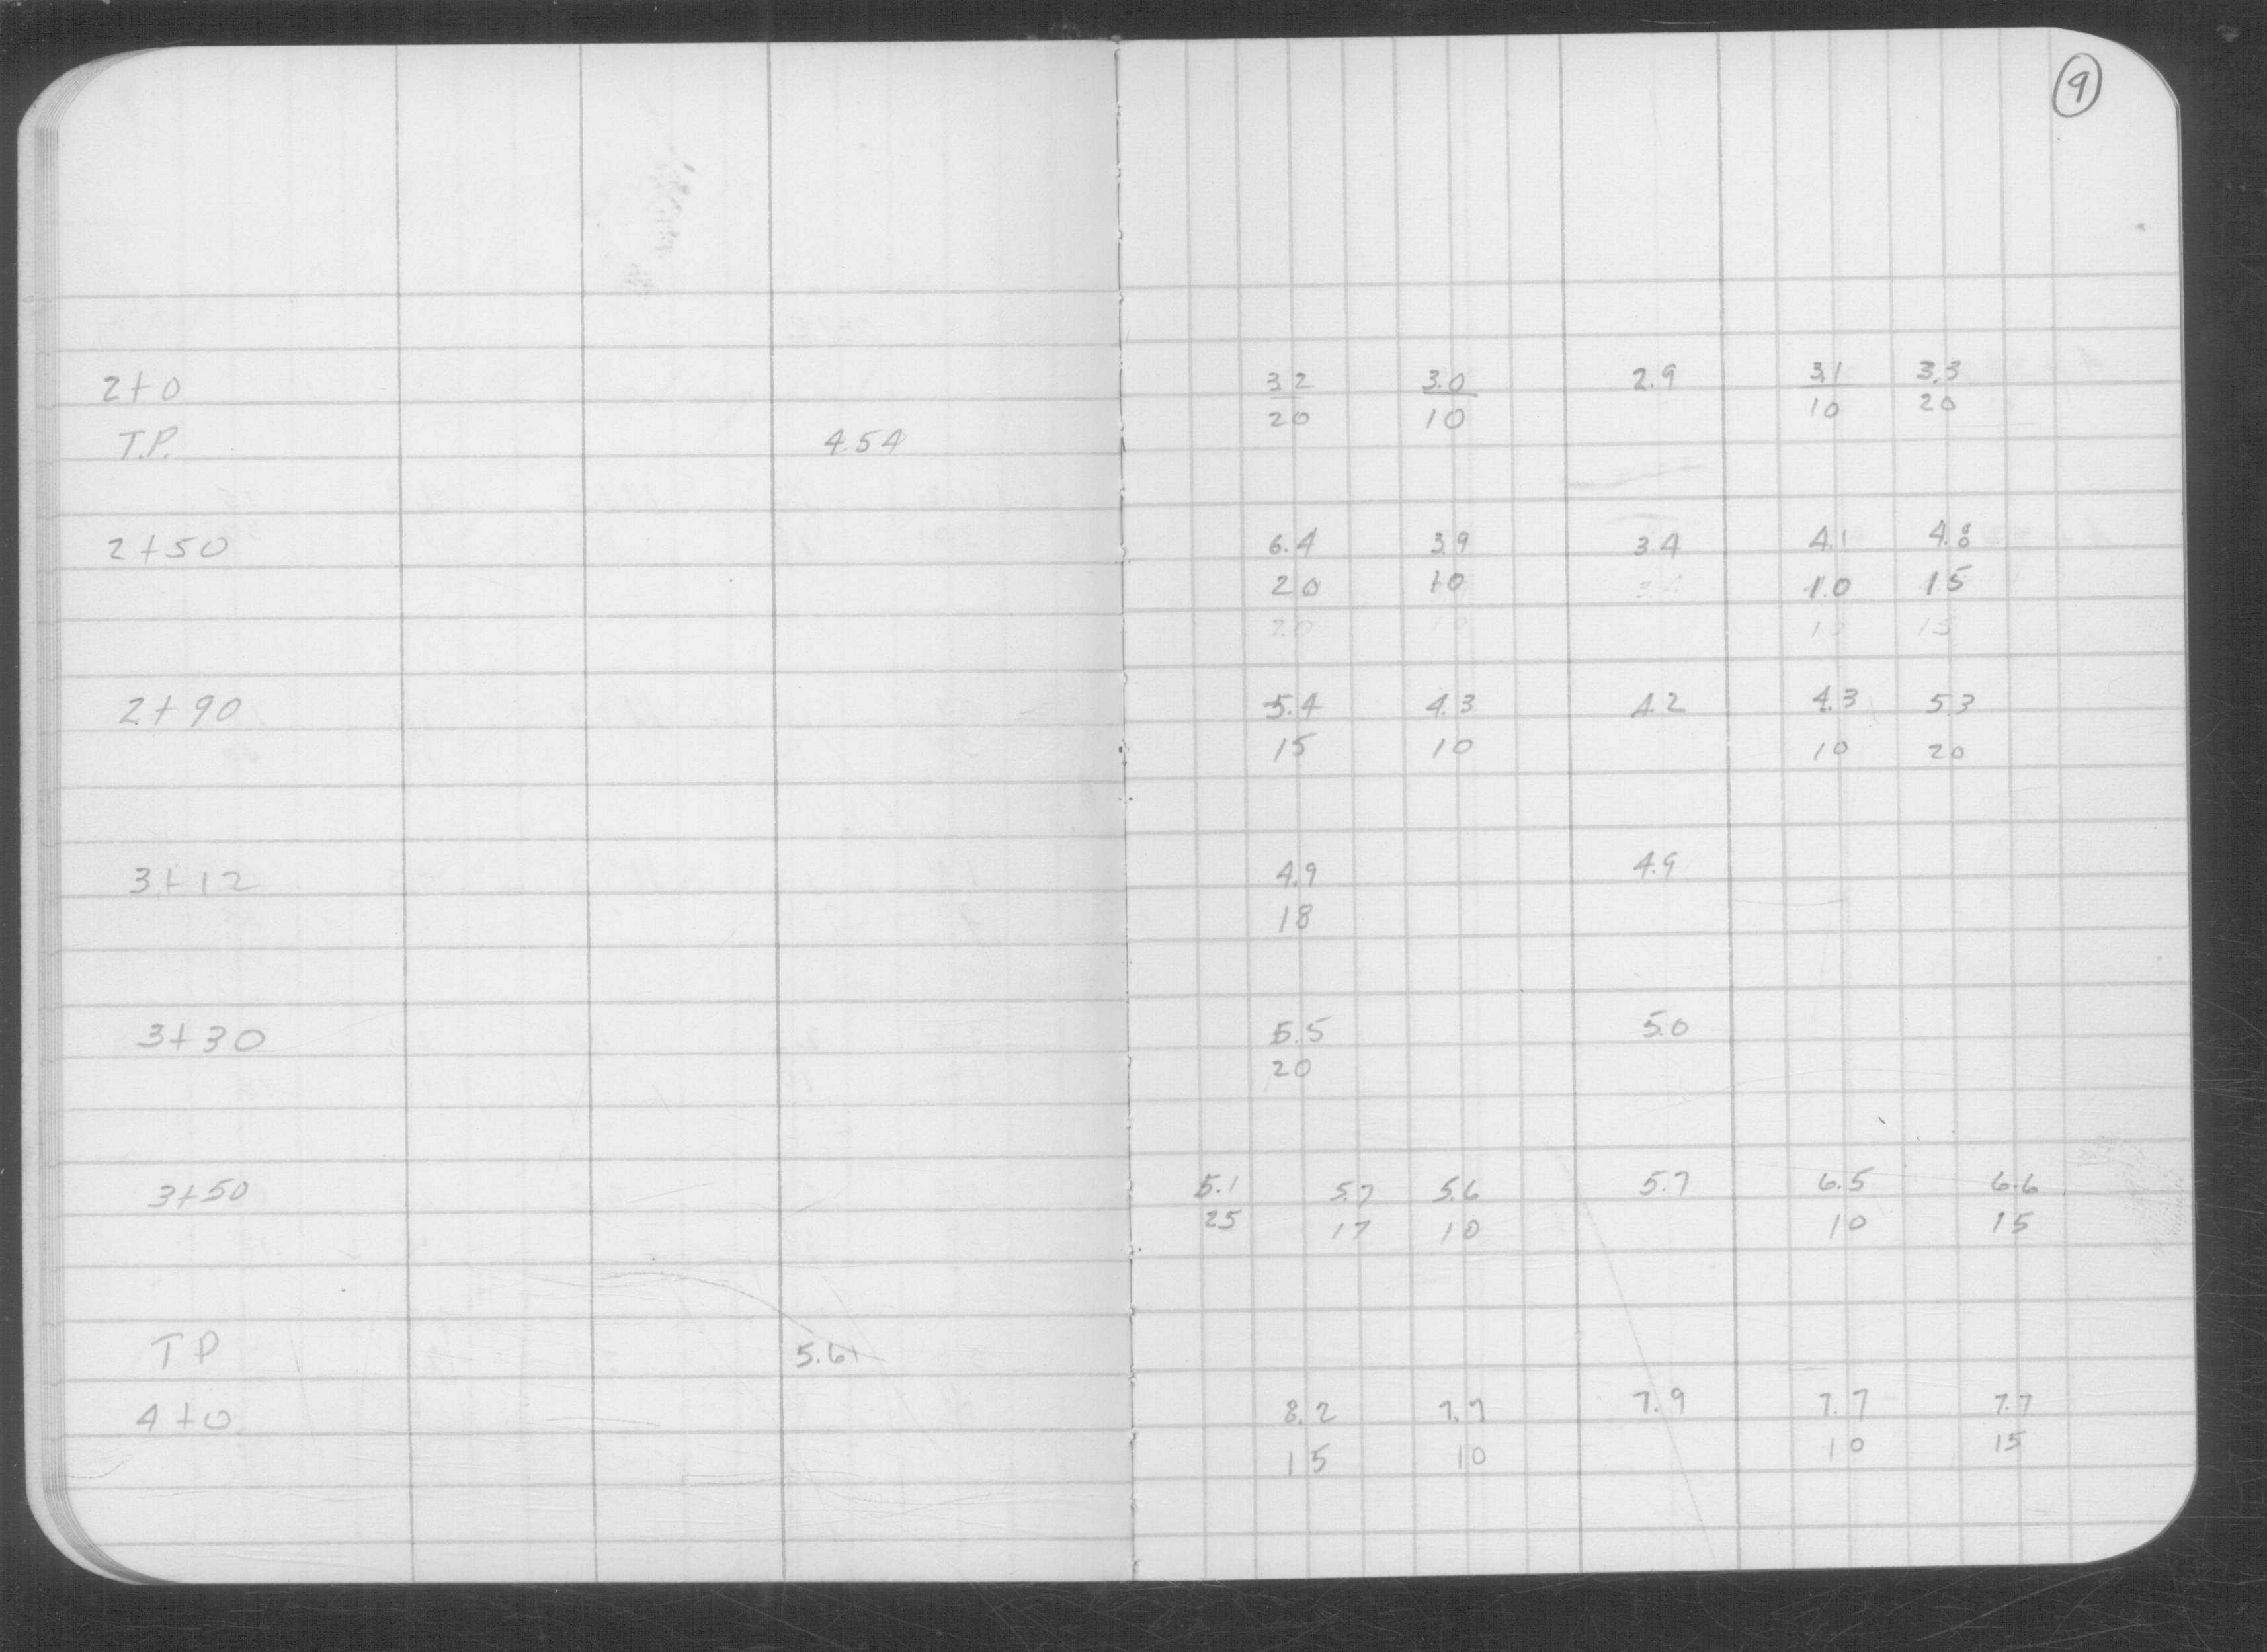 9
2+0 3.2 3.0 2.9 3.1 3.3
20 10 10 20
T.P. 4.54
2+50 6.4 3.9 3.4 4.1 4.8
20 10 3.4 10 15
20 10 10 15
2+90 5.4 4.3 4.2 4.3 5.3
15 10 10 20
3+12 4.9 4.9
18
3+30 5.5 5.0
20
3+50 5.1 5.7 5.6 5.7 6.5 6.6
25 17 10 10 15
TP 5.61
4+0 8.2 7.7 7.9 7.7 7.7
15 10 10 15